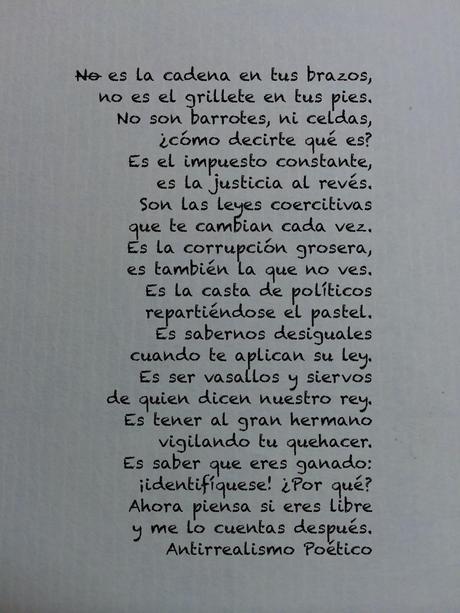 No es la cadena en tus brazos,
no es el grillete en tus pies.
No son barrotes, ni celdas,
¿cómo decirte qué es?
Es el impuesto constante,
es la justicia al revés.
Son las leyes coercitivas
que te cambian cada vez.
Es la corrupción grosera,
es también la que no ves.
Es la casta de políticos
repartiéndose el pastel.
Es sabernos desiguales
cuando te aplican su ley.
Es ser vasallos y siervos
de quien dicen nuestro rey.
Es tener al gran hermano
vigilando tu quehacer.
Es saber que eres ganado:
¡identifíquese! ¿Por qué?
Ahora piensa si eres libre
y me lo cuentas después.
Antirrealismo Poético